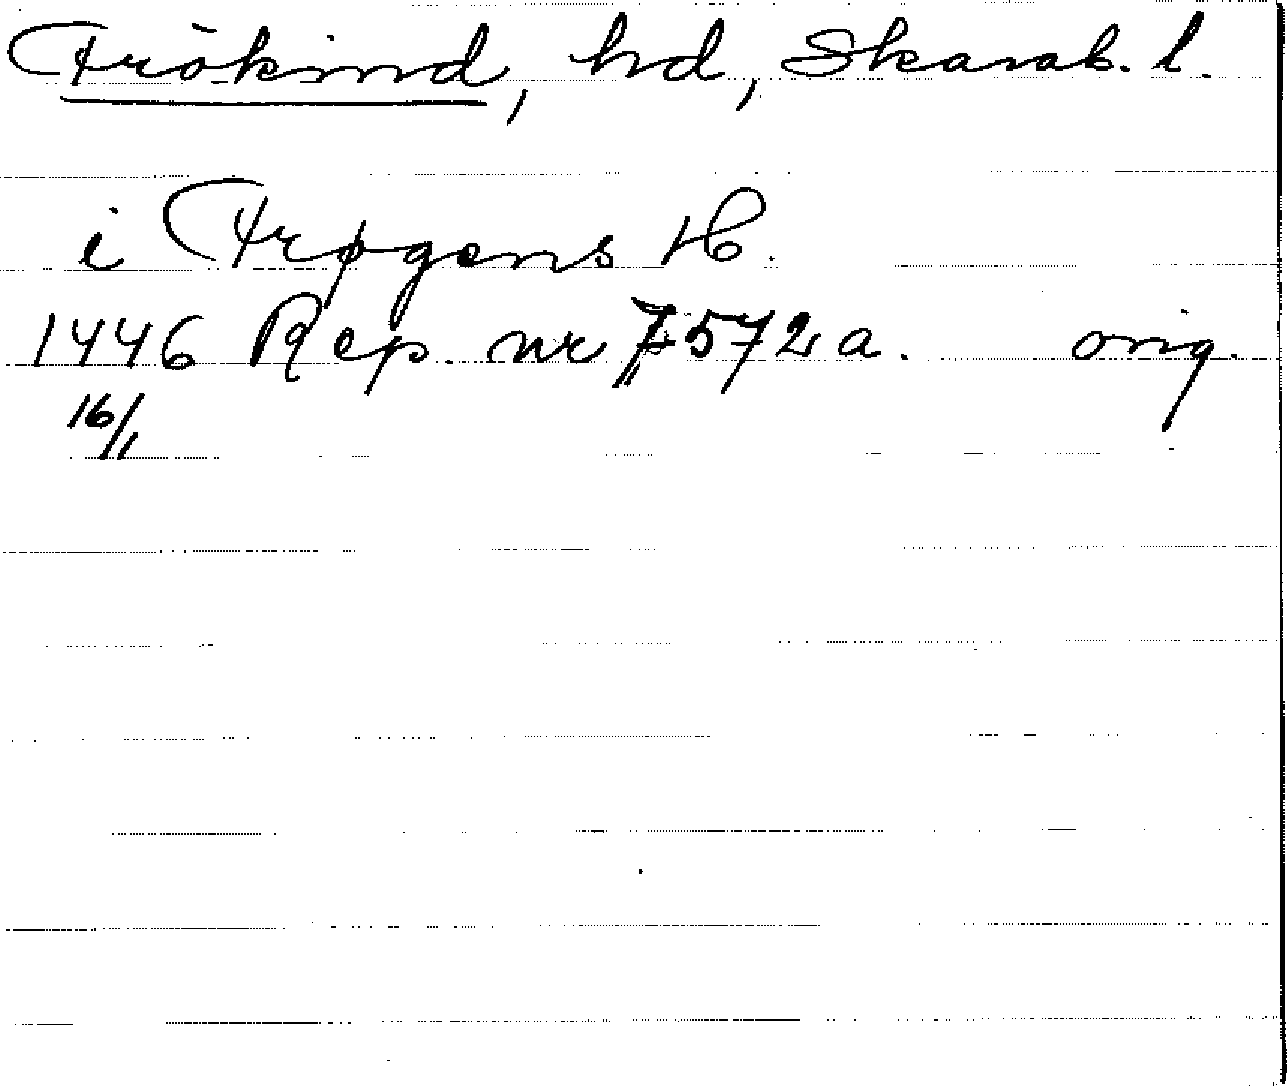 Frökind, hd, Skarab. l.
i Frøgens H.
1446 Rep. nr 7572 a. orig.
16/1